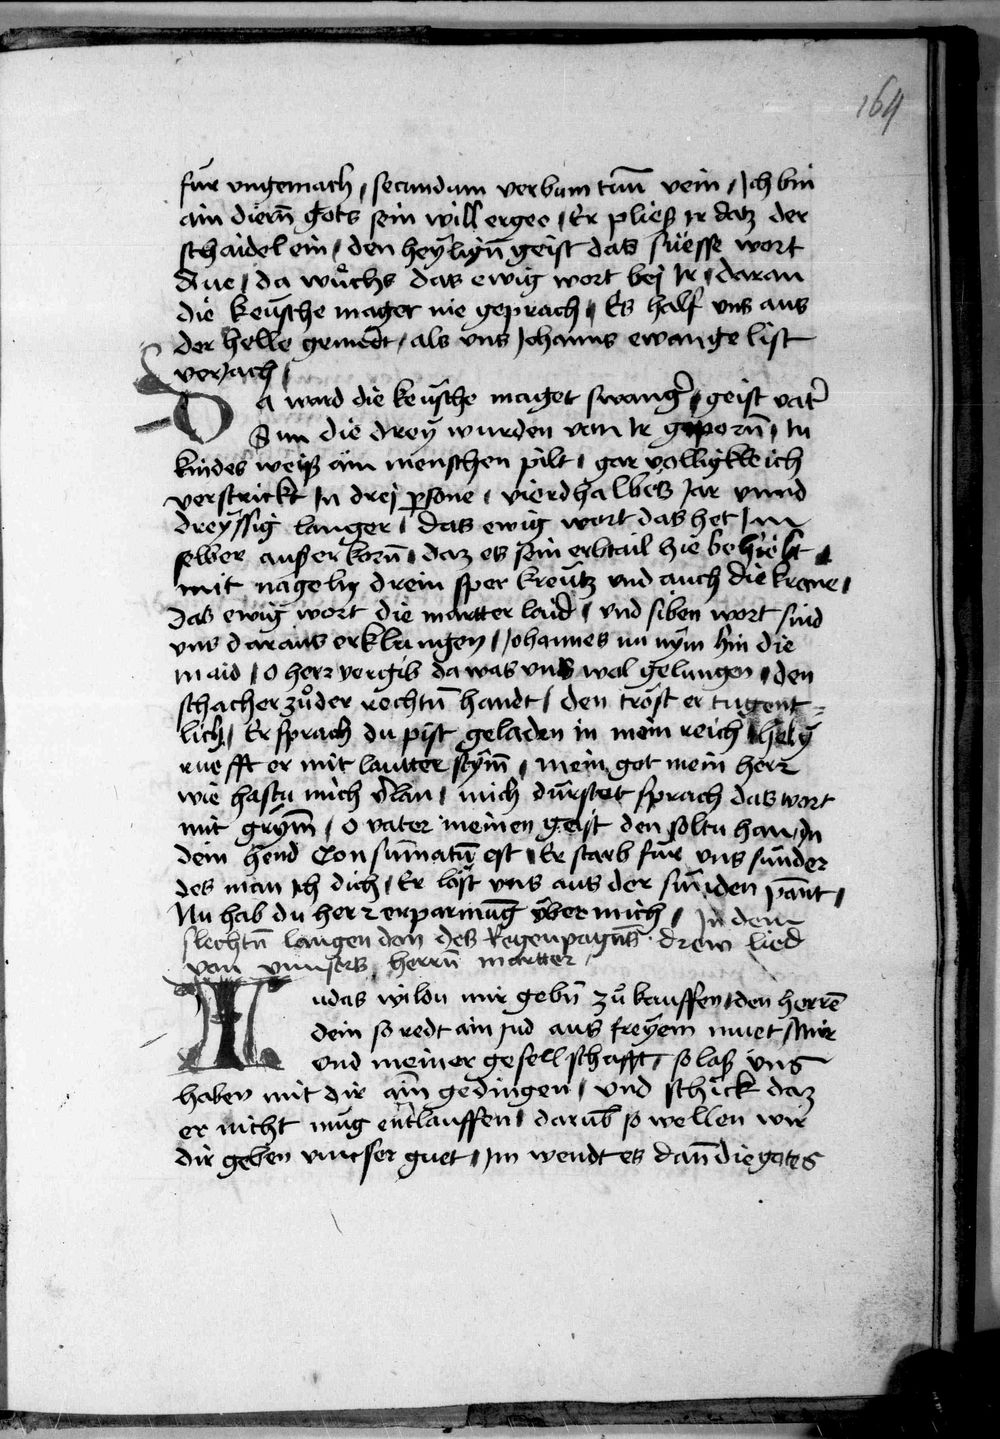 164
für vngemach / secundum verbum tuū vein / Ich bin
ain diern̄ gots sein will ergee / Er pließ ir datz der
schaidel ein / den heylign̄ geist das süesse wort
Aue / da wůchs das ewig wort bej Ir / daran
die keüsche maget nie geprach / Es half vns aus
der helle gruedt / als vns Johanns ewangelist
verjach /
Da ward die keüsche maget swanḡ / geist vat̄
Sun die drey wurden von Ir geporn̄ / In
kindes weiß ain menschen pilt / gar völligkleich
verstrickt In drej ꝑsone / vierdhalbes Jar vnnd
dreyssig langer / das ewig wort das het Im
selber ausserkorn̄ / daz es sein erbtail hie behielt /
mit nageln drein sper kreütz vnd auch die krone /
das ewig wort die martter laid / vnd siben wort sind
vns daraus erklungen / Johannes nu nym hin die
maid / o herr vergib da was vns wol gelungen / den
schacher zůder rechtn̄ handt / den tröst er tugent=
lich / Er sprach du pist geladen in mein reich / hely
ruefft er mit lautter stym̄ / mein got mein herr
wie hastu mich v̄lan / mich dürstet sprach das wort
mit grym̄ / o vater meinen geist den soltu han / In
dein hend Consum̄atū est / Er starb für vns sünder
des man ich dich / Er löst vns aus der sünden pant /
Nu hab du herr erparmūg über mich / In dem
slechtn̄ langen don des Regenpagn̄s drew lied
von vnnsers herrn̄ martter
Iudas wildu mir gebn̄ zů kauffen / den herrē
dein so redt ain jud aus freyem muet / Mir
vnd meiner gesellschafft / so laß vns
haben mit dir ain̄ gedingen / vnd schick daz
er nicht müg entlauffen / darūb so wellen wir
dir geben vnnser guet / Im wendt es dan̄ die gotes